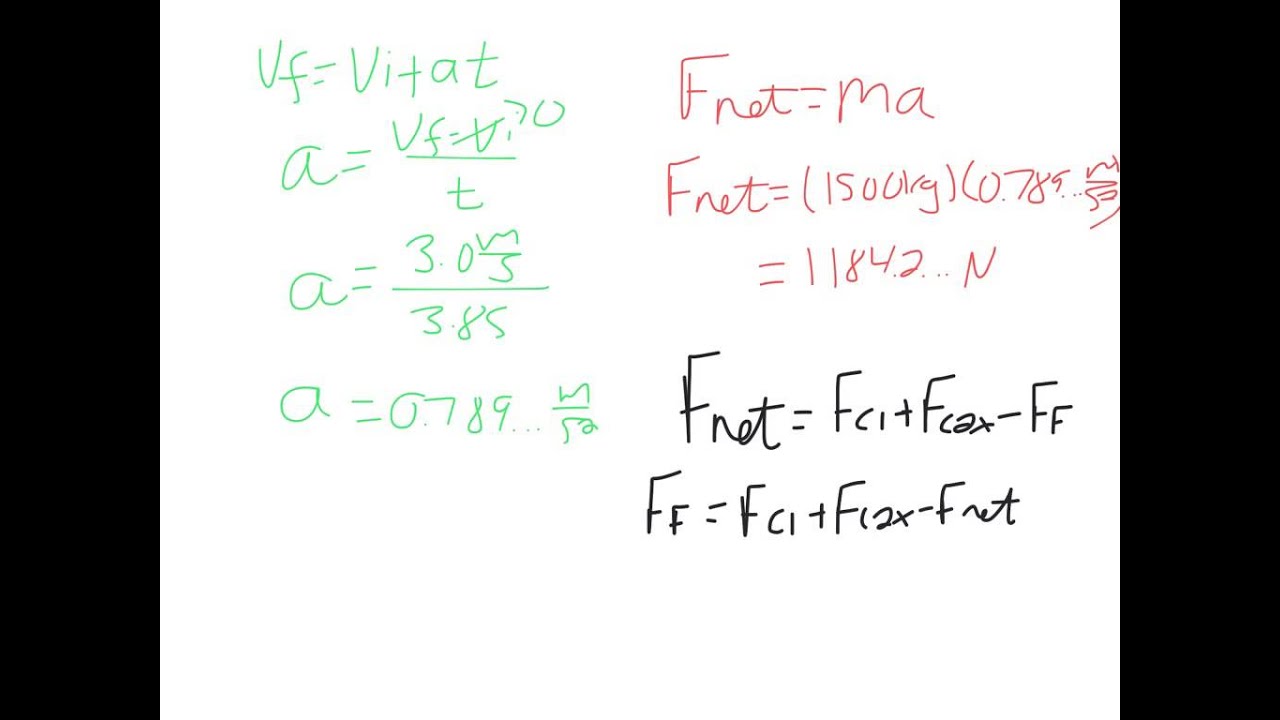 Vf = Vi + at
a = Vf - Vi → 0
t
a = 3.0 m/s
3.85
a = 0.789... m/s²
Fnet = ma
Fnet = (1500kg)(0.789... m/s²)
= 1184.2... N
Fnet = Fc1 + Fc2x - FF
FF = Fc1 + Fc2x - Fnet